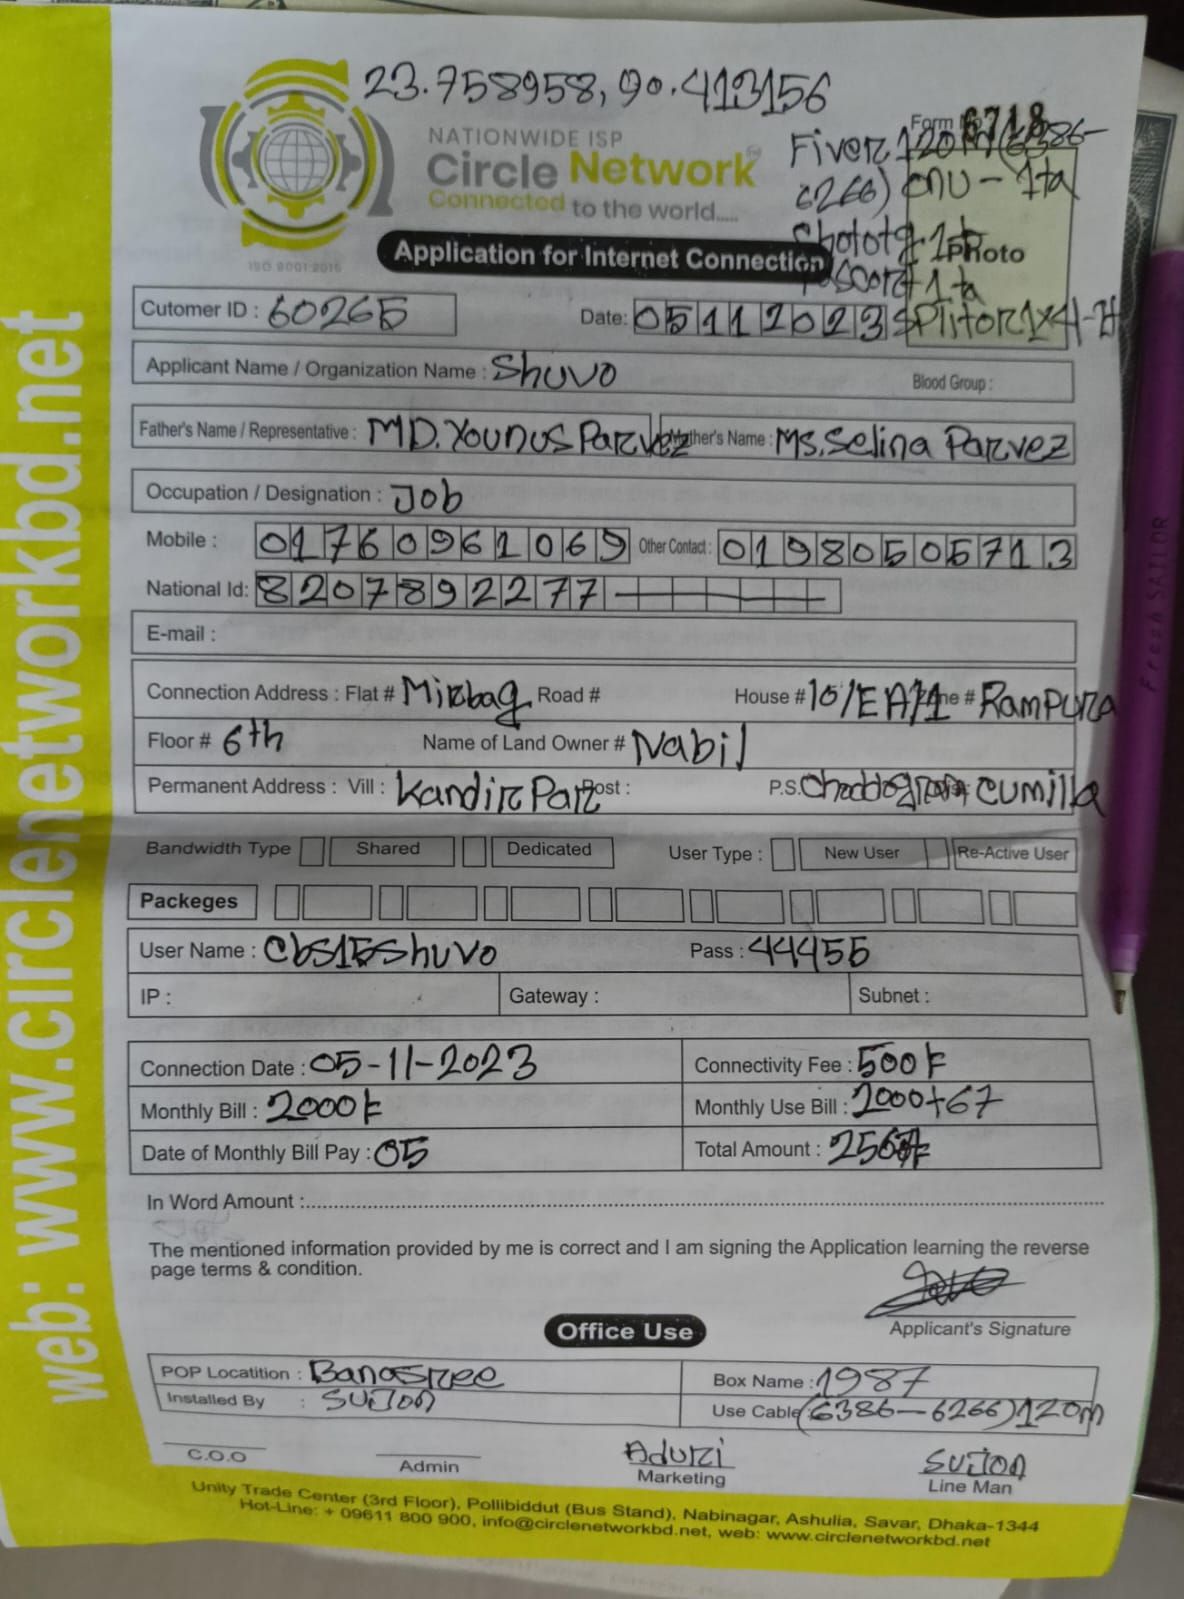 23.758958, 90.413156
NATIONWIDE ISP
Circle Network
Connected to the world.....
ISO 9001:2015
Form No 6718
Fiver 120m (6386-
6266) onu - 1ta
1ta
Photo
Splitor 1x4
Application for Internet Connection
Cutomer ID : 60265
Date: 05112023
Applicant Name / Organization Name : Shuvo
Blood Group :
Father's Name / Representative : MD. Younus Parvez
Mother's Name : Ms. Selina Parvez
Occupation / Designation : Job
Mobile : 01760961069 Other Contact : 01980505713
National Id: 8207892277
E-mail :
Connection Address : Flat # Mirbag Road # House # 10/EA/1 Rampura
Floor # 6th Name of Land Owner # Nabil
Permanent Address : Vill : Kandirpar Post : P.S. Cumilla
Bandwidth Type Shared Dedicated User Type : New User Re-Active User
Packeges
User Name : Cbs15shuvo Pass : 44455
IP : Gateway : Subnet :
Connection Date : 05-11-2023 Connectivity Fee : 500
Monthly Bill : 2000 Monthly Use Bill : 2000+67
Date of Monthly Bill Pay : 05 Total Amount : 2567
In Word Amount :
The mentioned information provided by me is correct and I am signing the Application learning the reverse
page terms & condition.
Applicant's Signature
Office Use
POP Locatition : Banasree Box Name : 1987
Installed By : Sujon Use Cable (6386-6266) 120m
C.O.O
Admin
Aduri
Marketing
Sujon
Line Man
Unity Trade Center (3rd Floor), Pollibiddut (Bus Stand), Nabinagar, Ashulia, Savar, Dhaka-1344
Hot-Line: + 09611 800 900, info@circlenetworkbd.net, web: www.circlenetworkbd.net
web: www.circlenetworkbd.net
Fresh SAILOR